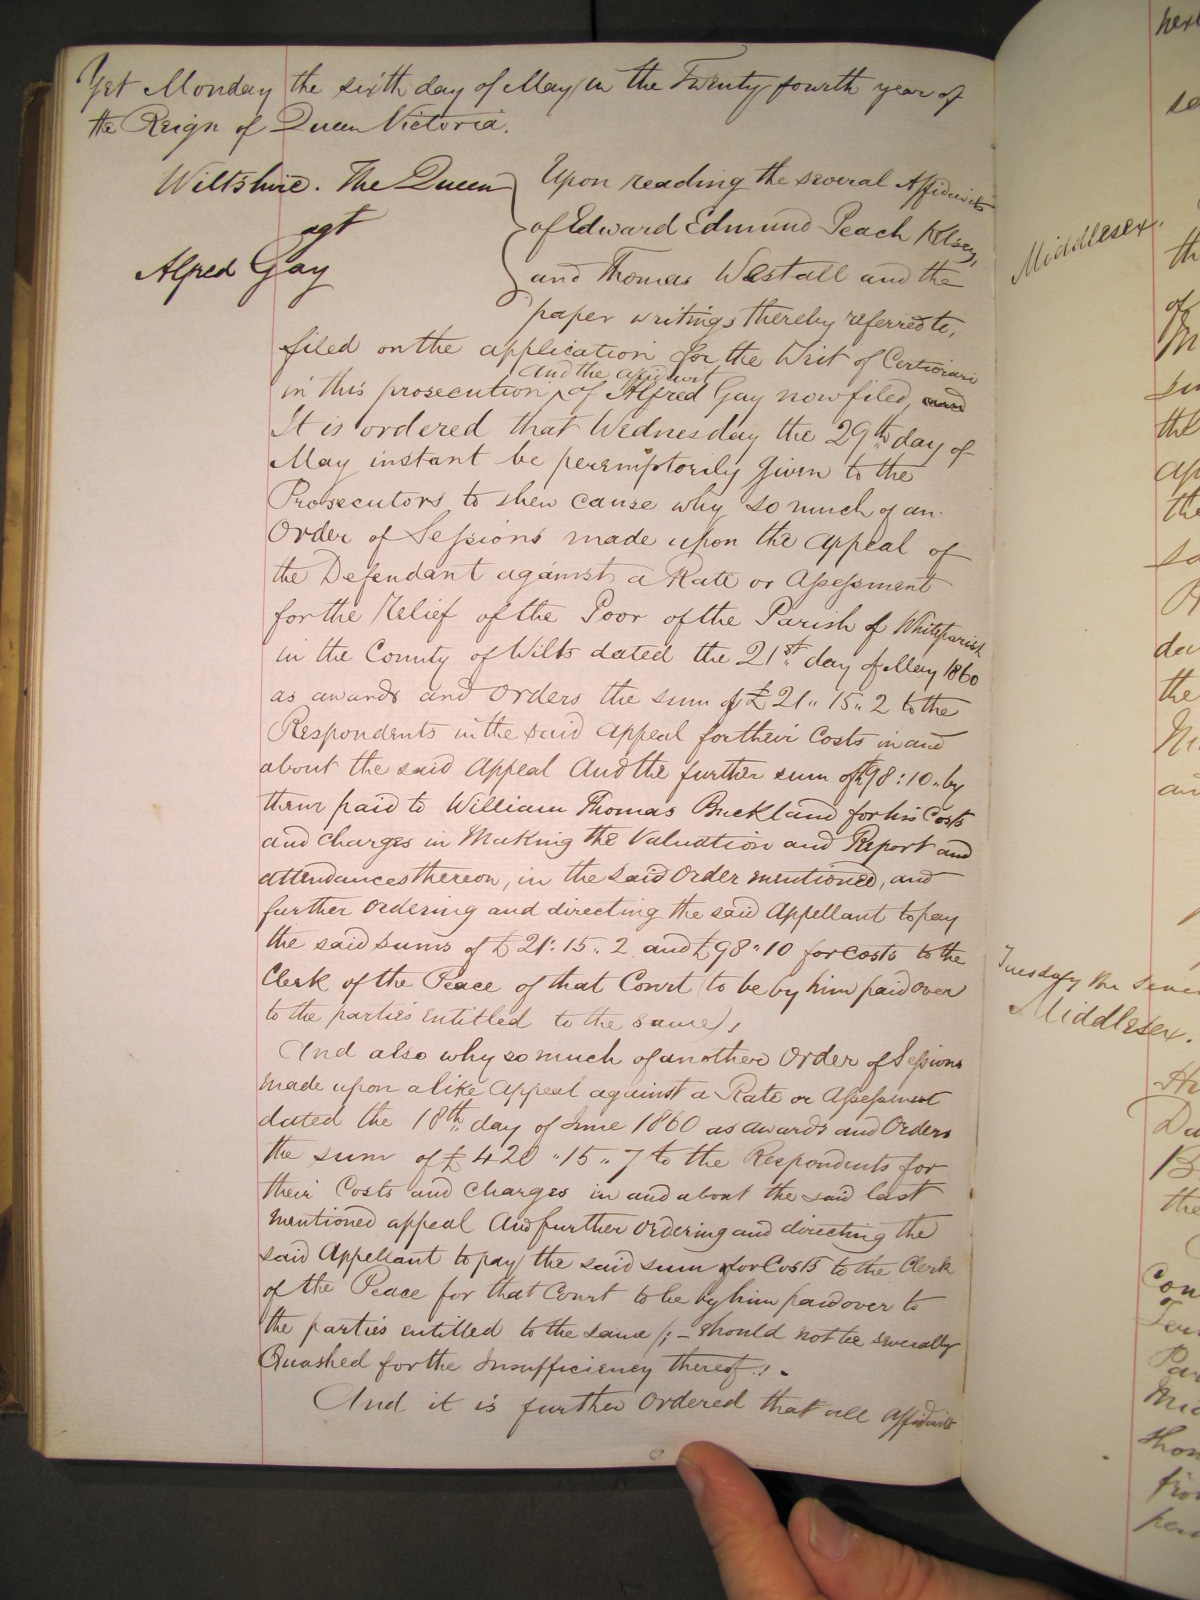 Yet Monday the sixth day of May in the Twenty fourth year of
the Reign of Queen Victoria.
Wiltshire. The Queen
agt
Alfred Gay
Upon reading the several Affidavits
of Edward Edmund Peach Kelsey,
and Thomas Westall and the
paper writings thereby referred to,
filed on the application for the Writ of Certiorari
and the affidavit
in this prosecution, of Alfred Gay now filed, and
It is ordered that Wednesday the 29th day of
May instant be peremptorily given to the
Prosecutors to shew cause why so much of an
Order of Sessions made upon the appeal of
the Defendant against a Rate or Assessment
for the Relief of the Poor of the Parish of Whiteparish
in the County of Wilts dated the 21st day of May 1860
as awards and Orders the sum of £21" 15" 2 to the
Respondents in the said appeal for their Costs in and
about the said Appeal And the further sum of £98:10" by
them paid to William Thomas Buckland for his Costs
and Charges in Making the Valuation and Report and
attendances thereon, in the said Order mentioned, and
further ordering and directing the said Appellant to pay
the said sums of £21:15" 2 and £98"10 for costs to the
Clerk of the Peace of that Court to be by him paid over
to the parties entitled to the same);
And also why so much of another Order of Sessions
made upon a like Appeal against a Rate or Assessment
dated the 18th day of June 1860 as awards and Orders
the sum of £420 "15" 7 to the Respondents for
their Costs and Charges in and about the said last
mentioned appeal And further ordering and directing the
said Appellant to pay the said sum for Costs to the Clerk
of the Peace for that Court to be by him paid over to
the parties entitled to the same /; – should not be severally
Quashed for the Insufficiency thereof: -
And it is further Ordered that all Affidavits
Middlesex.
Tuesday the
Middlesex.